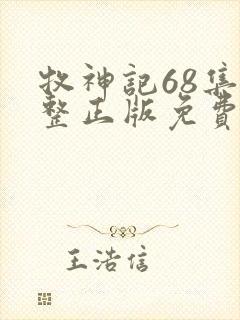 牧神記68集
整正版免費
王浩信